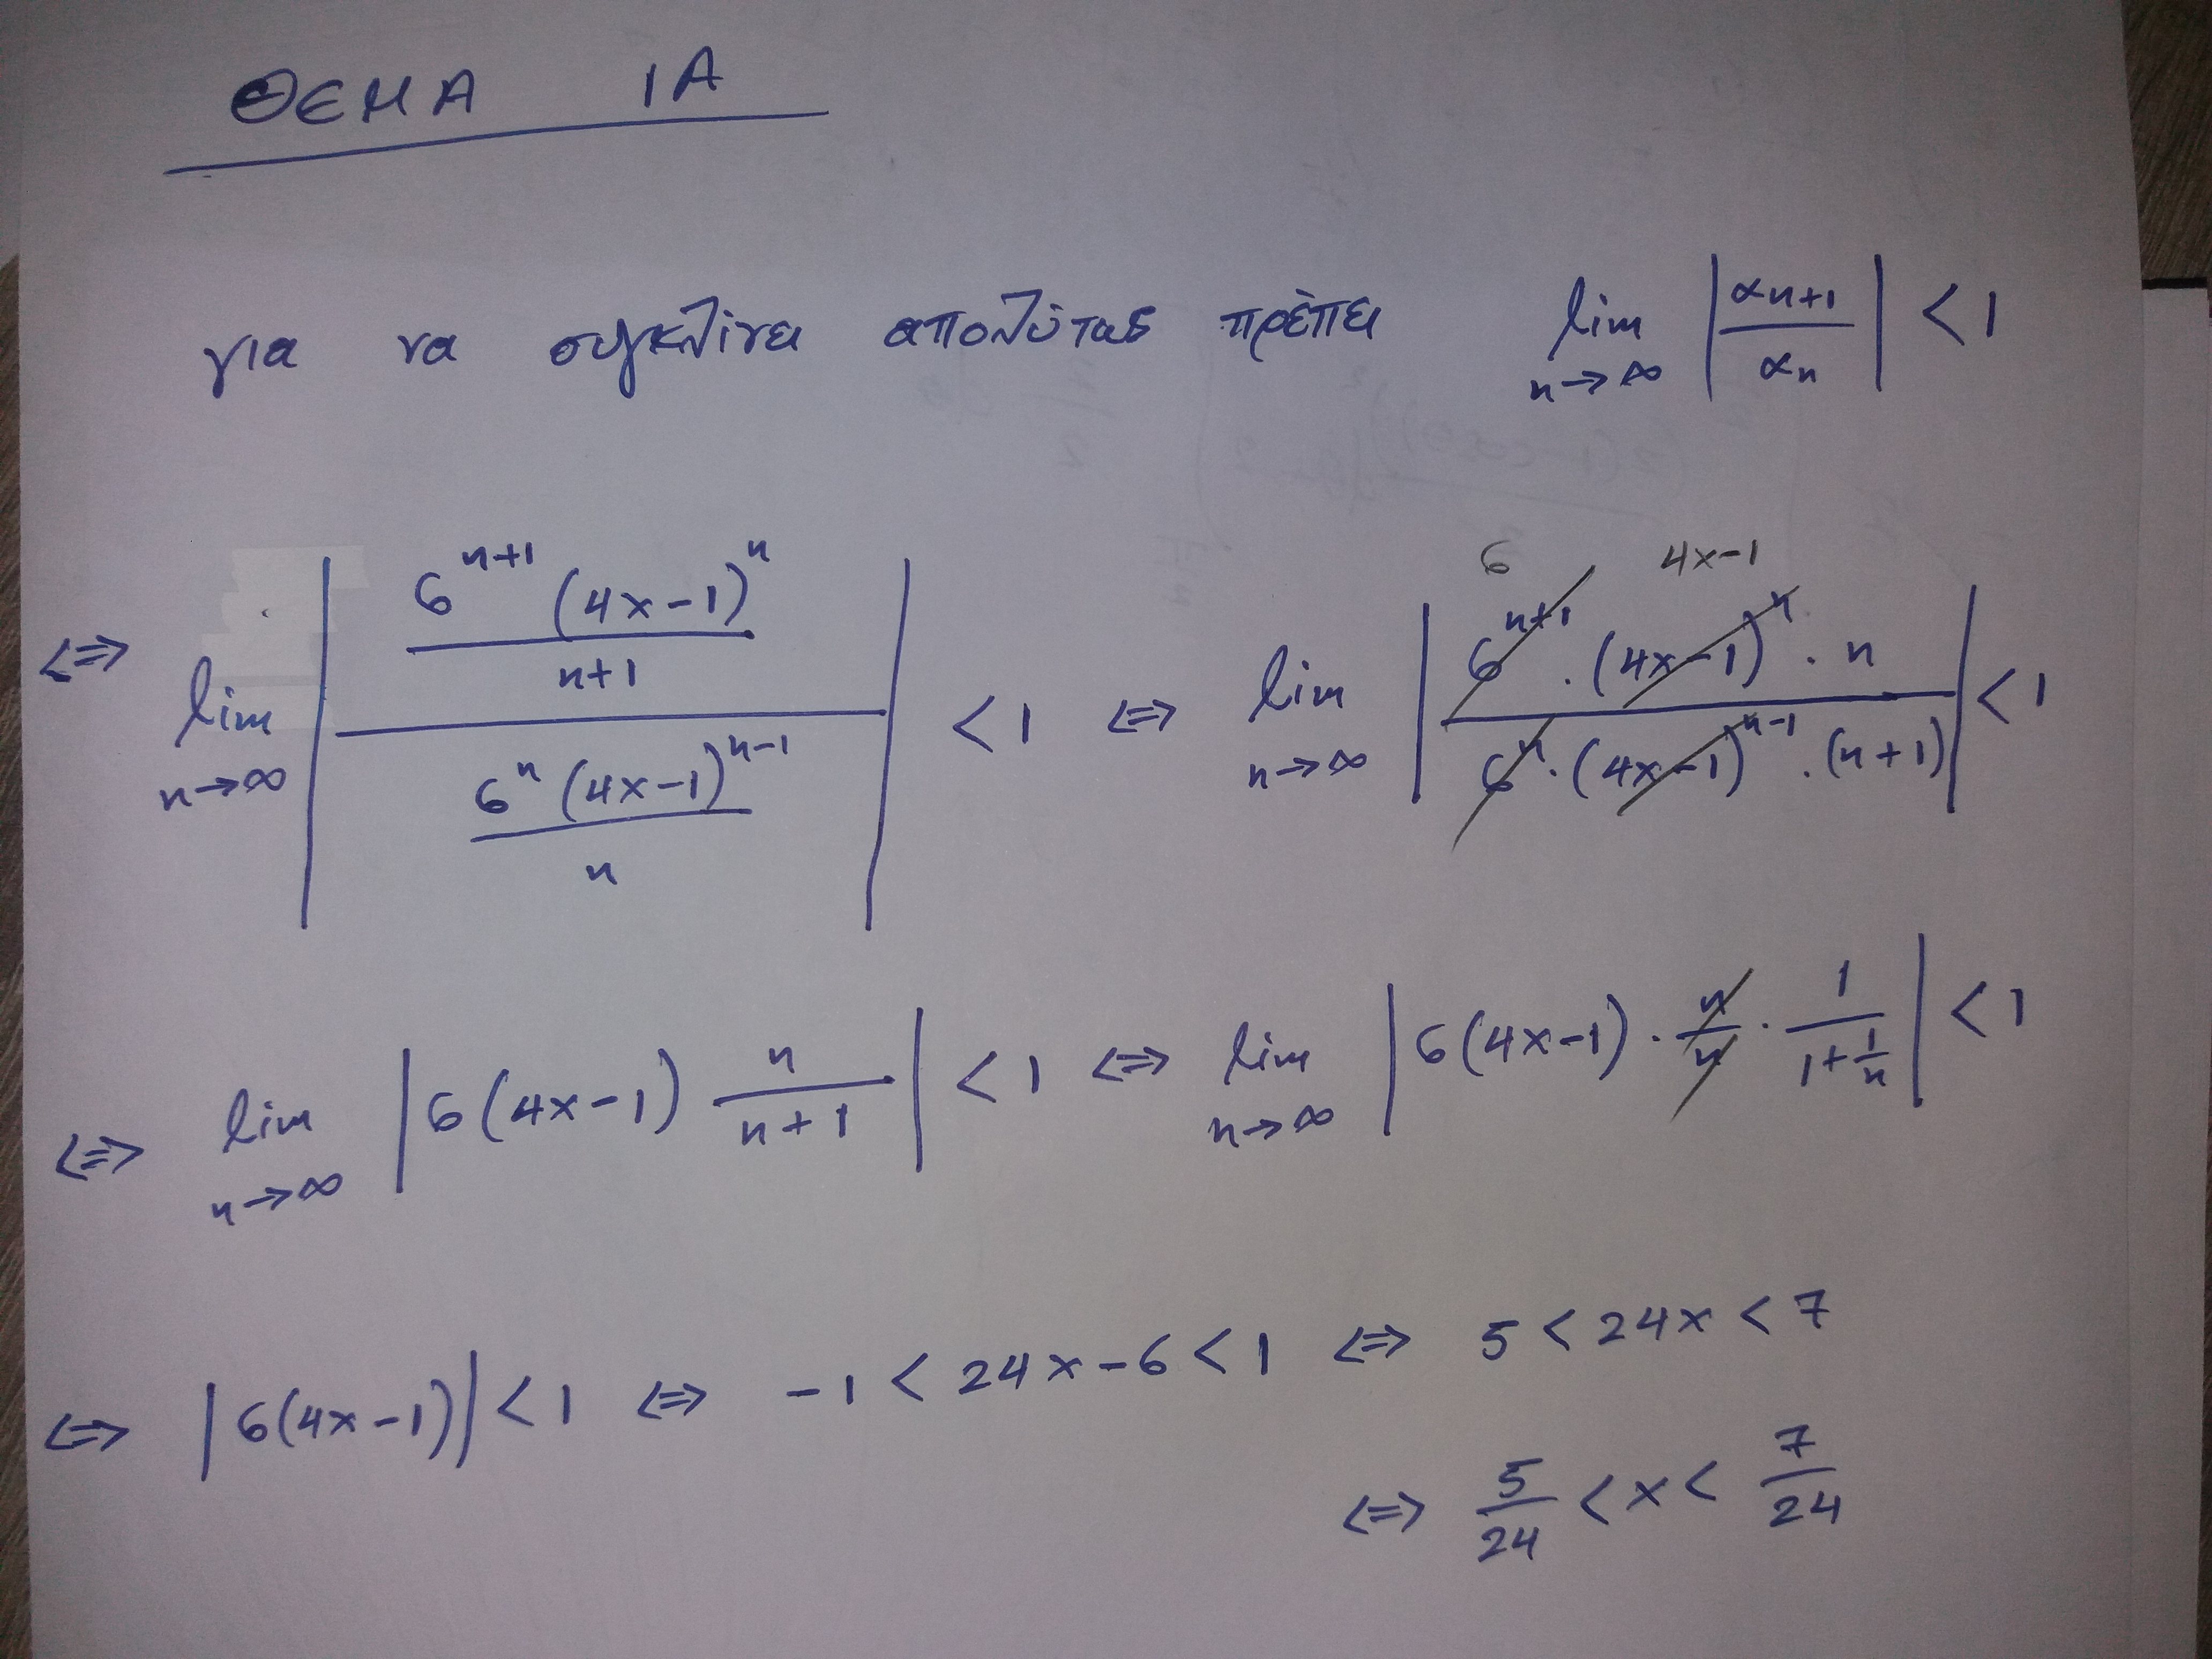 ΘΕΜΑ 1Α
για να συγκλίνει απολύτως πρέπει lim_{n→∞} |α_{n+1}/α_n| < 1
⇔ lim_{n→∞} |(6^{n+1}(4x-1)^n/(n+1))/(6^n(4x-1)^{n-1}/n)| < 1 ⇔ lim_{n→∞} |(6^{n+1}·(4x-1)^n·n)/(6^n·(4x-1)^{n-1}·(n+1))| < 1
6 4x-1
⇔ lim_{n→∞} |6(4x-1) n/(n+1)| < 1 ⇔ lim_{n→∞} |6(4x-1)·n/n·1/(1+1/n)| < 1
⇔ |6(4x-1)| < 1 ⇔ -1 < 24x-6 < 1 ⇔ 5 < 24x < 7
⇔ 5/24 < x < 7/24